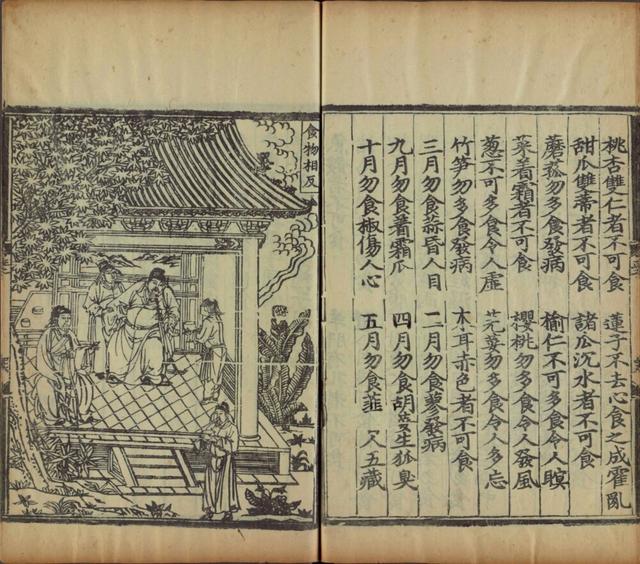 桃杏雙仁者不可食 蓮子不去心食之成霍亂
甜瓜雙蒂者不可食 諸瓜沉水者不可食
蘑菰勿多食發病 榆仁不可多食令人瞑
菜着霜者不可食 櫻桃勿多食令人發風
葱不可多食令人虛 芫荽勿多食令人多忘
竹笋勿多食發病 木耳赤色者不可食
三月勿食蒜昏人目 二月勿食蓼發病
九月勿食着霜瓜 四月勿食胡荽生狐臭
十月勿食椒傷人心 五月勿食韮 人五藏
食物相反